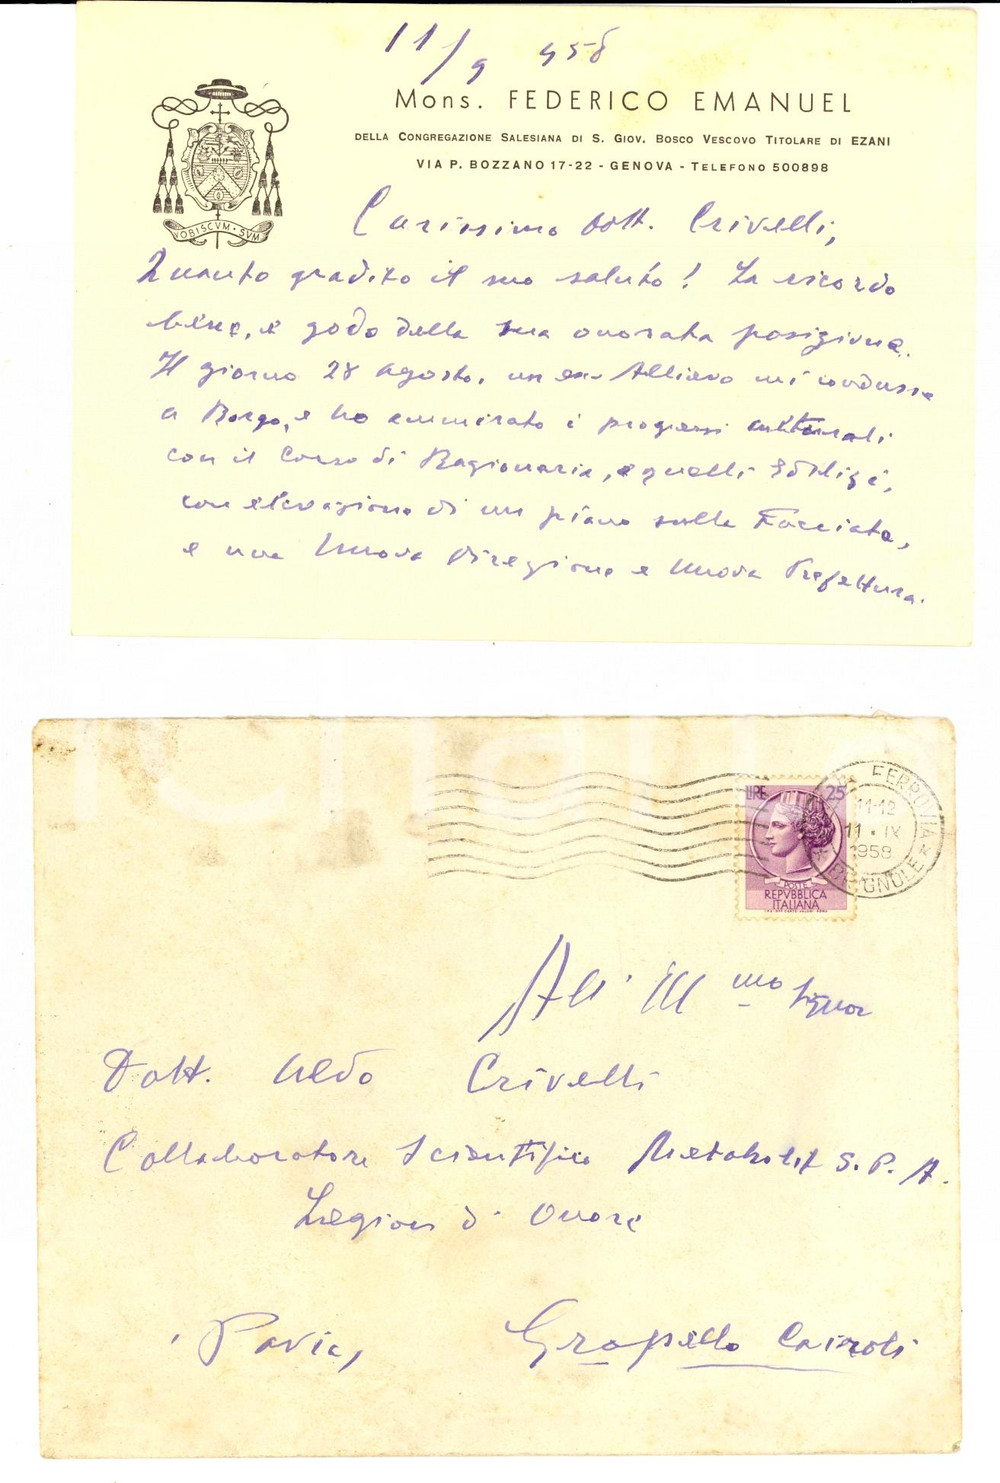 11/9 958
Mons. FEDERICO EMANUEL
DELLA CONGREGAZIONE SALESIANA DI S. GIOV. BOSCO VESCOVO TITOLARE DI EZANI
VIA P. BOZZANO 17-22 - GENOVA - TELEFONO 500898
VOBISCVM · SVM
Carissimo Dott. Crivelli,
Quanto gradito il suo saluto! La ricordo
bene, e godo della sua onorata posizione.
Il giorno 28 agosto, un ex Allievo mi condusse
a Borgo, e ho ammirato i progressi culturali
con il Corso di Ragioneria, e quelli Edilizi,
con elevazione di un piano sulla Facciata,
e una Nuova Direzione e Nuova Prefettura.
LIRE 25
POSTE
REPVBBLICA
ITALIANA
FERROVIA
11-12
11 · IX
1958
BRIGNOLE
All' Ill mo Signor
Dott. Aldo Crivelli
Collaboratore Scientifico S. P. A.
Legion d' Onore
Pavia, Gropello Cairoli